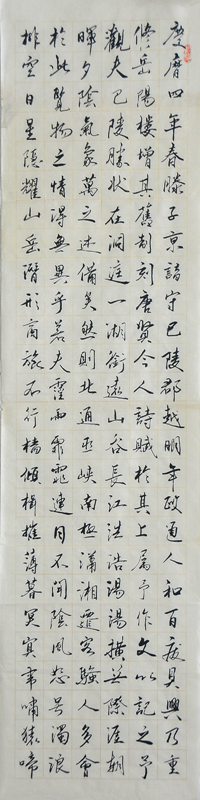 慶曆四年春滕子京謫守巴陵郡越明年政通人和百廢具興乃重
修岳陽樓增其舊制刻唐賢今人詩賦於其上屬予作文以記之予
觀夫巴陵勝狀在洞庭一湖銜遠山吞長江浩浩湯湯橫無際涯朝
暉夕陰氣象萬之述備矣然則北通巫峽南極瀟湘遷客騷人多會
於此覽物之情得無異乎若夫霪雨霏霏連月不開陰風怒号濁浪
排空日星隱耀山岳潛形商旅不行檣傾楫摧薄暮冥冥虎嘯猿啼